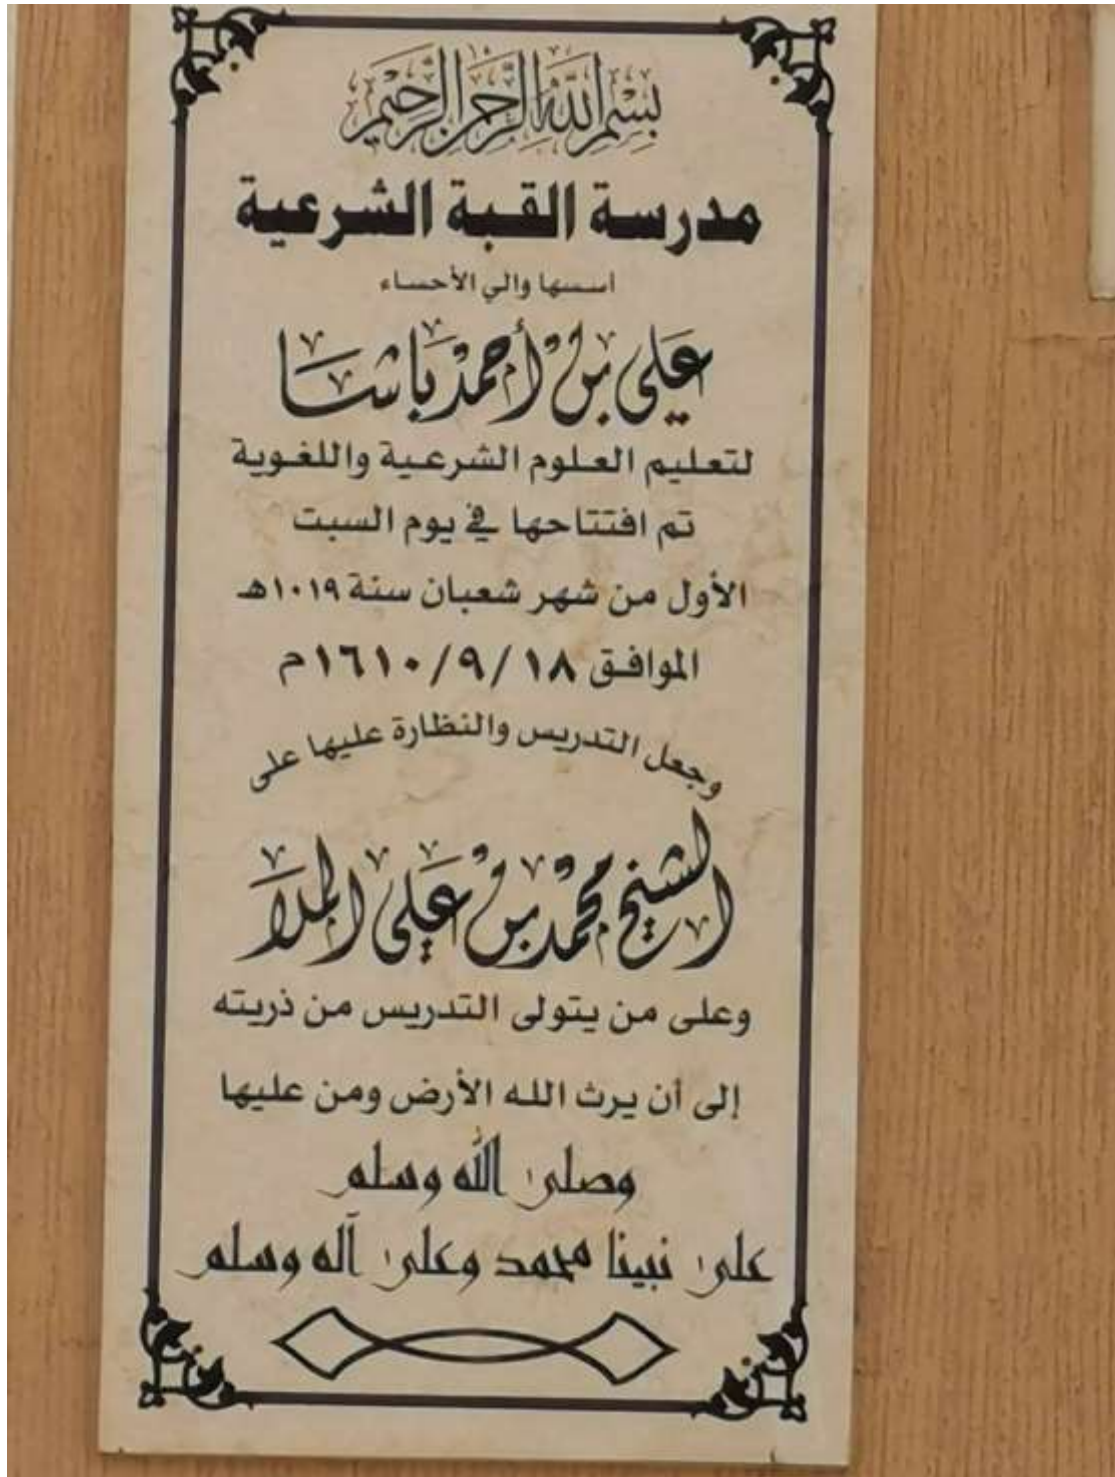 بسم الله الرحمن الرحيم
مدرسة القبة الشرعية
اسسها والي الأحساء
علي بن أحمد باشا
لتعليم العلوم الشرعية واللغوية
تم افتتاحها في يوم السبت
الأول من شهر شعبان سنة ١٠١٩هـ
الموافق ١٦١٠/٩/١٨م
وجعل التدريس والنظارة عليها على
الشيخ محمد بن علي الملا
وعلى من يتولى التدريس من ذريته
إلى أن يرث الله الأرض ومن عليها
وصلى الله وسلم
على نبينا محمد وعلى آله وسلم